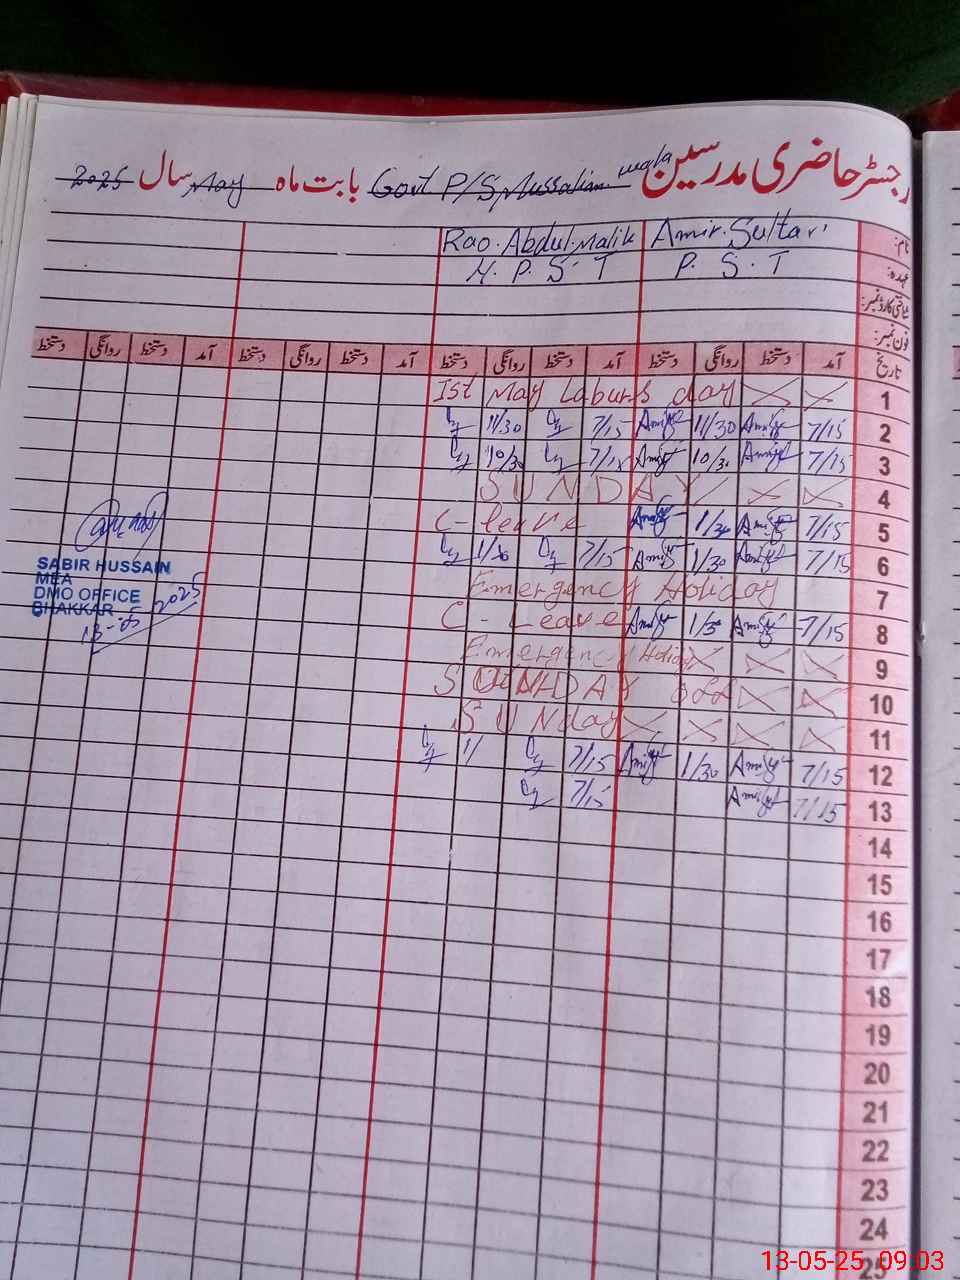 رجسٹر حاضری مدرسین Govt P/S Mussalim wala بابت ماہ May سال 2025
نام: Amir Sultan Rao Abdul Malik
عہدہ: P. S. T H. P. S. T
شناختی کارڈ نمبر:
فون نمبر:
تاریخ آمد دستخط روانگی دستخط آمد دستخط روانگی دستخط آمد دستخط روانگی دستخط
1 Ist May Laburs day
2 7/15 11/30 7/15 11/30
3 7/15 10/30 7/15 10/30
4 SUNDAY
5 7/15 1/30 C- leave
6 7/15 1/30 7/15 1/30
7 Emergency Holiday
8 7/15 1/30 C - Leave
9 Emergency Holiday
10 SUNDAY
11 SUNday
12 7/15 1/30 7/15 1/
13 7/15 7/15
14
15
16
17
18
19
20
21
22
23
24
25
SABIR HUSSAIN
MEA
DMO OFFICE
BHAKKAR
13-05-2025
13-05-25, 09:03